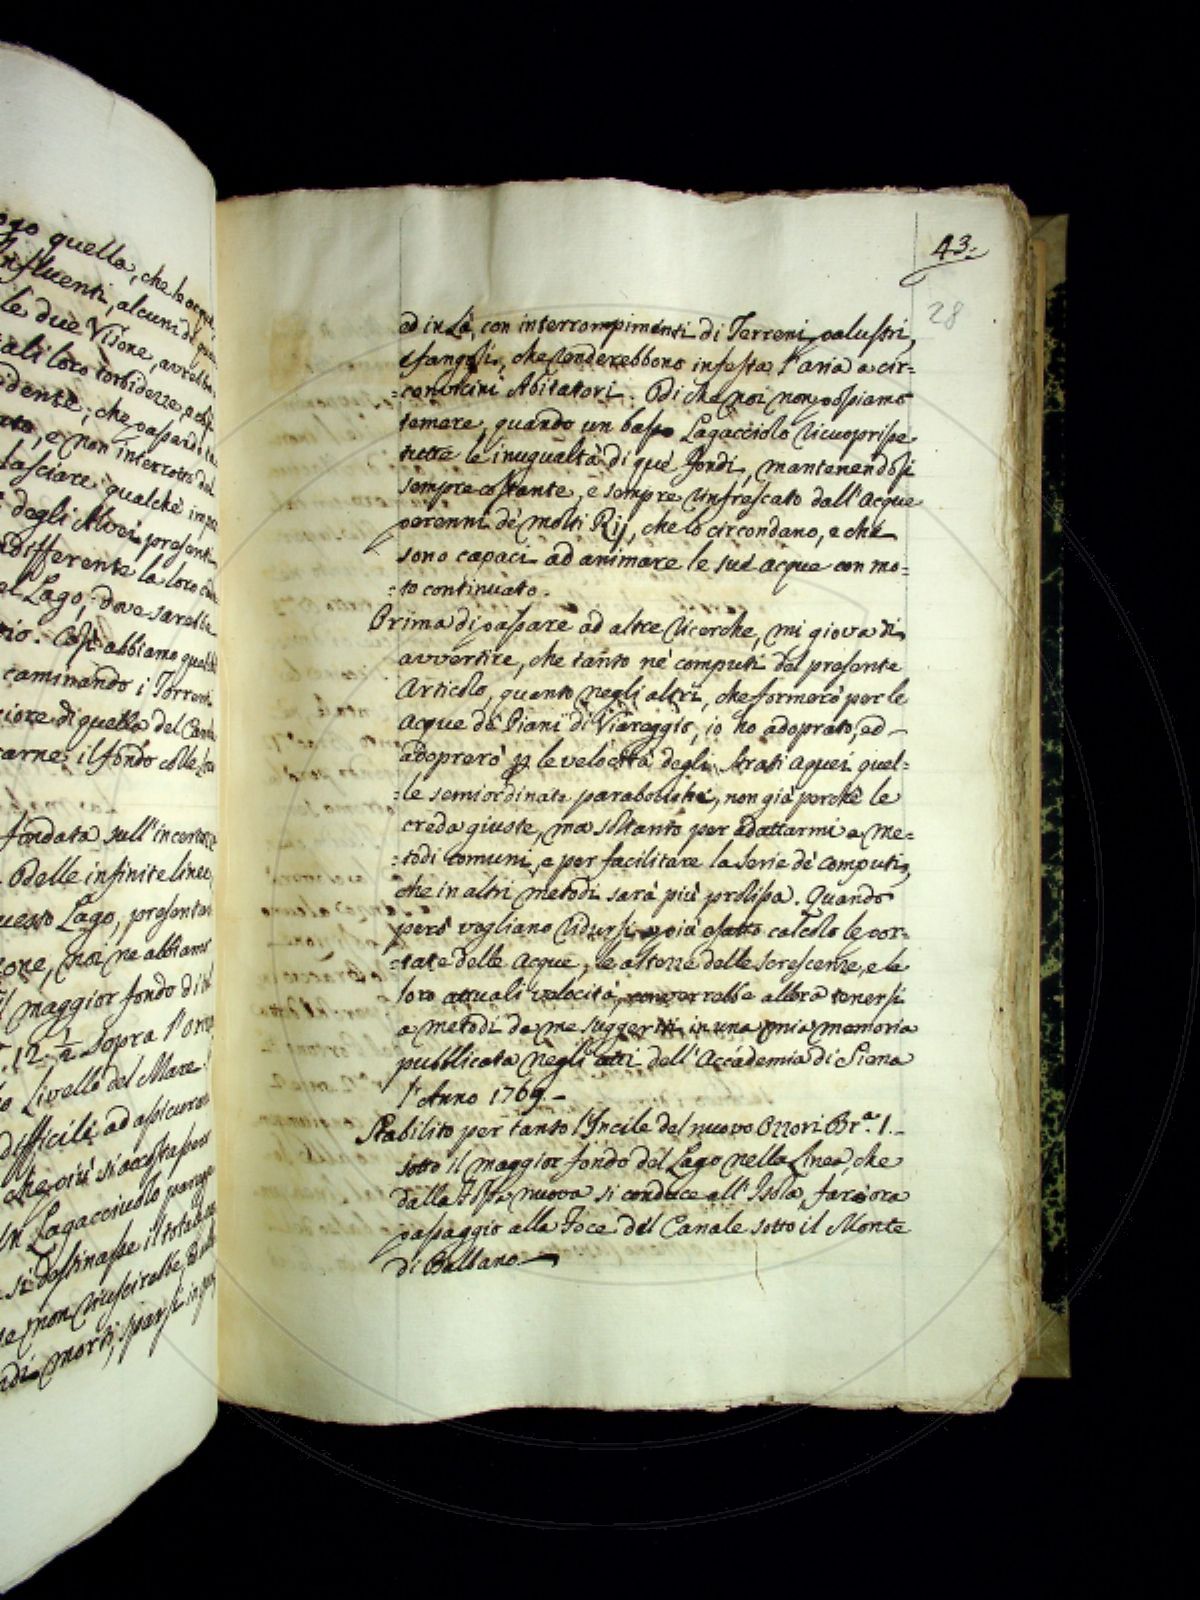 ogo quella, che le acque
Influenti, alcuni de quali
le due Visone, avrebbe
iali loro torbidezze,
dente; che passando
e non interrotto dal
lasciare qualche
degli Alvei presenti
indifferente la loro
el Lago, dove sarebbe
rio. Così abbiamo
caminando i Torrenti
iore di quello del
carne il fondo colle
fondata sull'incertezza
Delle infinite linee,
uesto Lago, presentar
noi ne abbiamo
il maggior fondo di
12 ½ sopra l'
o Livello del Mare
difficili ad assicurar
che più si accosta
un Lagacciuolo
si destinasse il totale
ne non riuscirebbe,
di morti, sparsi in
43.
28
ad in Là, con interrompimenti di Terreni palustri,
e fangosi, che renderebbono infesta l'aria a cir=
=convicini Abitatori. Di che noi non possiamo
temere, quando un basso Lagacciolo ricuoprisse
tutte le inugualtà di que' Fondi, mantenendosi
sempre costante, e sempre rinfrescato dall'Acque
perenni de' molti Rij, che lo circondano, e che
sono capaci ad animare le sue acque con mo=
=to continuato.
Prima di passare ad altre ricerche, mi giova di
avvertire, che tanto ne' computi del presente
Articolo, quanto negli altri, che formerò per le
Acque de' Piani di Viareggio, io ho adoprato, ed
adoprerò p le velocità degli strati aquei quel=
=le semiordinate paraboliche, non già perchè le
creda giuste, ma soltanto per adattarmi a me=
=todi comuni, e per facilitare la serie de' computi,
che in altri metodi sarà più prolissa. Quando
però vogliano ridursi a più esatto calcolo le por=
=tate delle Acque, le altezze delle escrescenze, e le
loro attuali velocità, converrebbe allora tenersi
a metodi da me suggeriti in una mia memoria
pubblicata negli atti dell'Accademia di Siena
l'Anno 1769.
Stabilito per tanto l'Incile del nuovo Ozzori Br.ª 1.
sotto il maggior fondo del Lago nella Linea, che
dalla Fossa nuova si conduce all'Isola, farò ora
passaggio alla Foce del Canale sotto il Monte
di Balbano.